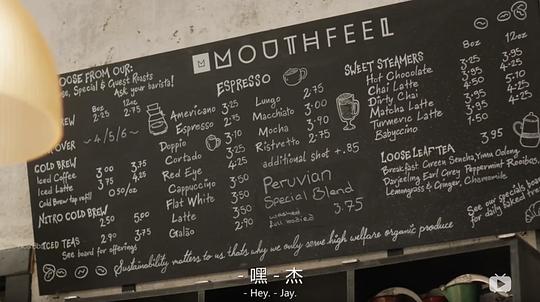 MOUTHFEEL
OOSE FROM OUR:
Special & Guest Roasts
Ask your barista!
8oz 12oz
2.25 2.75
OVER ~4/5/6~
COLD BREW
Iced Coffee 3.00 3.75
Iced Latte 3.75 4.25
Cold Brew tap refill 0.50/oz
NITRO COLD BREW
2.50 5.00
ICED TEAS 2.90 3.95
See board for offerings
ESPRESSO
Americano 3.25
Espresso 2.75
Doppio 3.10
Cortado 3.25
Red Eye 4.25
Cappuccino 3.50
Flat White 3.50
Latte 3.50
Galão 2.90
Lungo 2.75
Macchiato 3.00
Mocha 3.90
Ristretto 2.75
additional shot +.85
Peruvian
Special Blend
washed
full bodied 3.75
SWEET STEAMERS
8oz 12oz
Hot Chocolate 3.25 3.95
Chai Latte
Dirty Chai
Matcha Latte
Turmeric Latte
Babyccino
3.95
LOOSE LEAF TEA
Breakfast Green Sencha, Yuma Oolong,
Darjeeling Earl Grey Peppermint Rooibos,
Lemongrass & Ginger, Chamomile
See our specials
for daily baked
Sustainability matters to us thats why we only serve high welfare organic produce
- 嘿 - 杰
- Hey. - Jay.